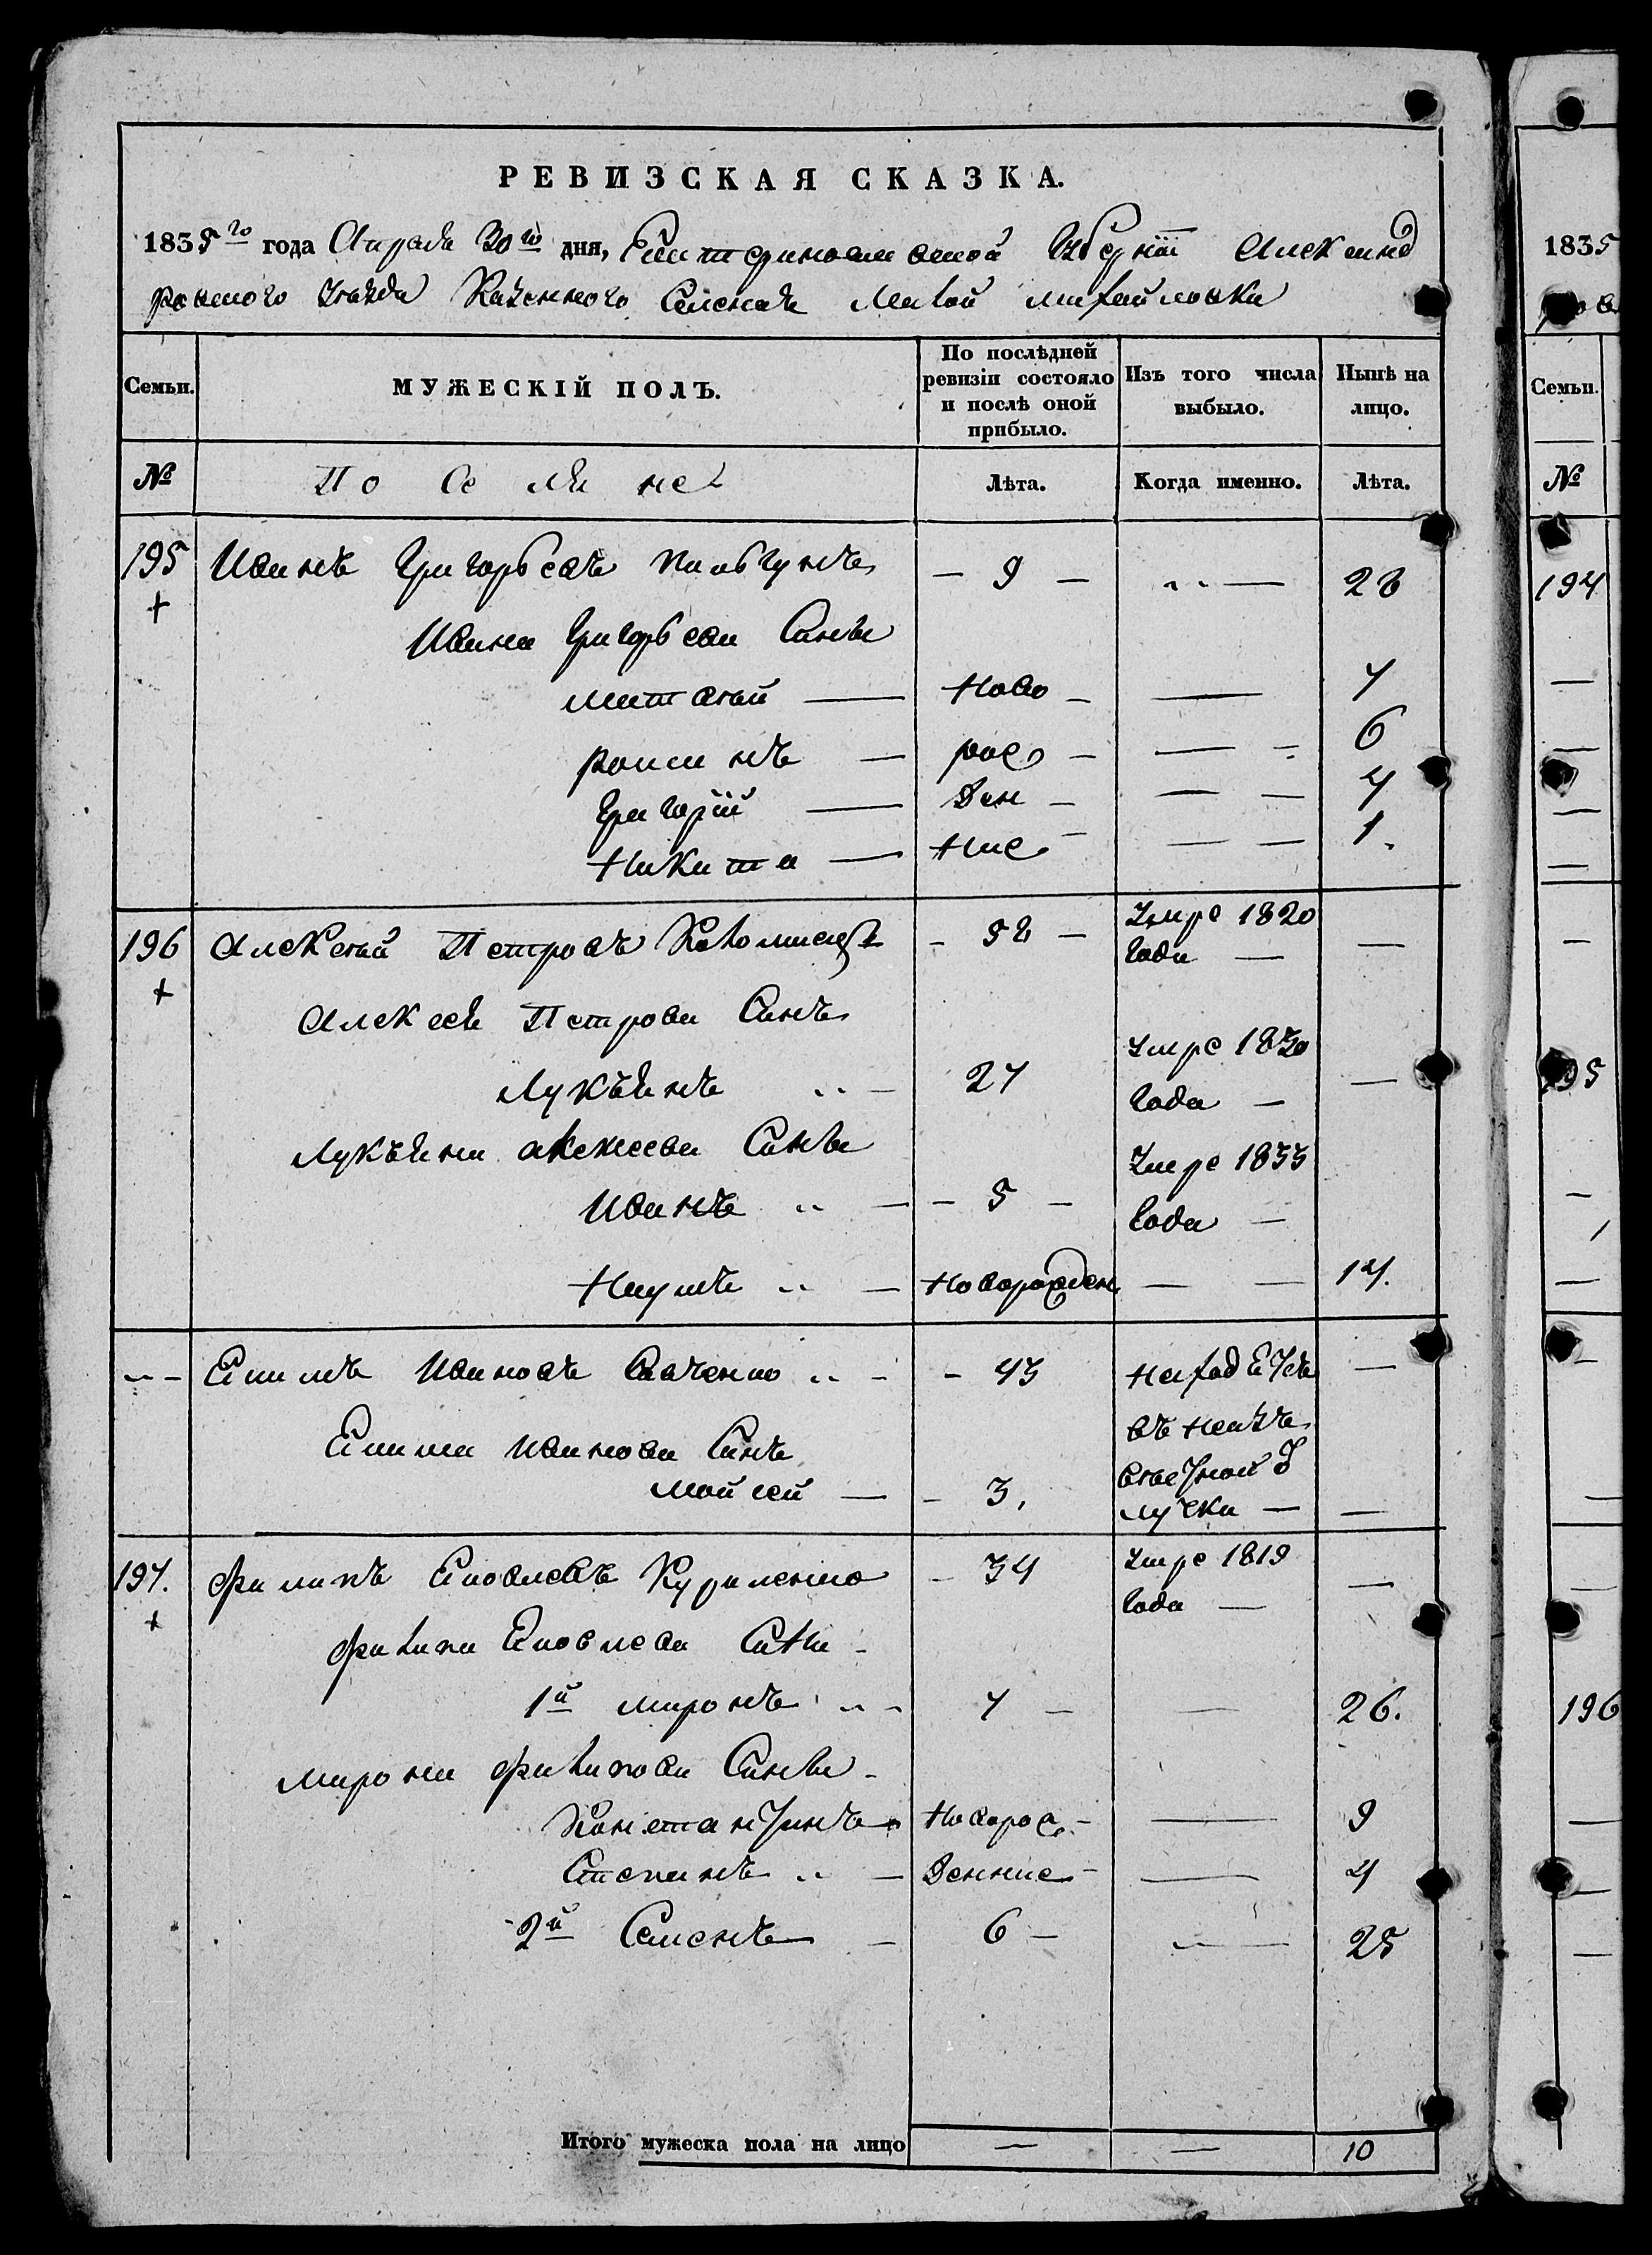 РЕВИЗСКАЯ СКАЗКА.
1835го года Апреля 30го дня, Екатеринославской Губерніи Александ
ровского уезда Казенного Селения Малой михайловки
Семьи. МУЖЕСКІЙ ПОЛЪ. По послѣдней ревизіи состояло и послѣ оной прибыло. Изъ того числа выбыло. Нынѣ на лицо.
№ Поселяне Лѣта. Когда именно. Лѣта.
195 Иванъ Григорьевъ - 9 - 26
Ивана Григорьева Сыны
матвѣй Ново 7
романъ рож 6
Григорій ден 4
Никита ные 1.
196 Алексѣй Петровъ Коломиецъ - 52 - Умре 1820 Года
Алексея Петрова Сынъ
Лукъянъ 27 Умре 1830 Года
Лукъяна алексеева Сыны
Иванъ - 5 - Умре 1833 Года
Наумъ Новорожден 14.
Екимъ Ивановъ Савченко - 43 находятся
Екима Иванова Сынъ въ неизъ
мойсей - 3, вѣстной о
лучки
197. Филипъ Яковлевъ Куриленко - 34 Умре 1819 Года
Филипа Яковлева Сыны
1й миронъ 7 26.
мирона Филипова Сыны
Константинъ Новорож 9
Степанъ денные 4
2й Семенъ 6 25
Итого мужеска пола на лицо 10
1835
Семьи.
№
194
195
196